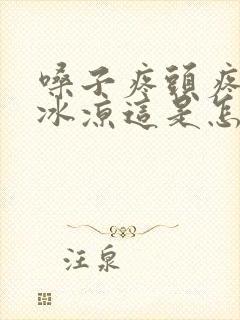 嗓子疼頭疼
冰凉這是怎
汪泉